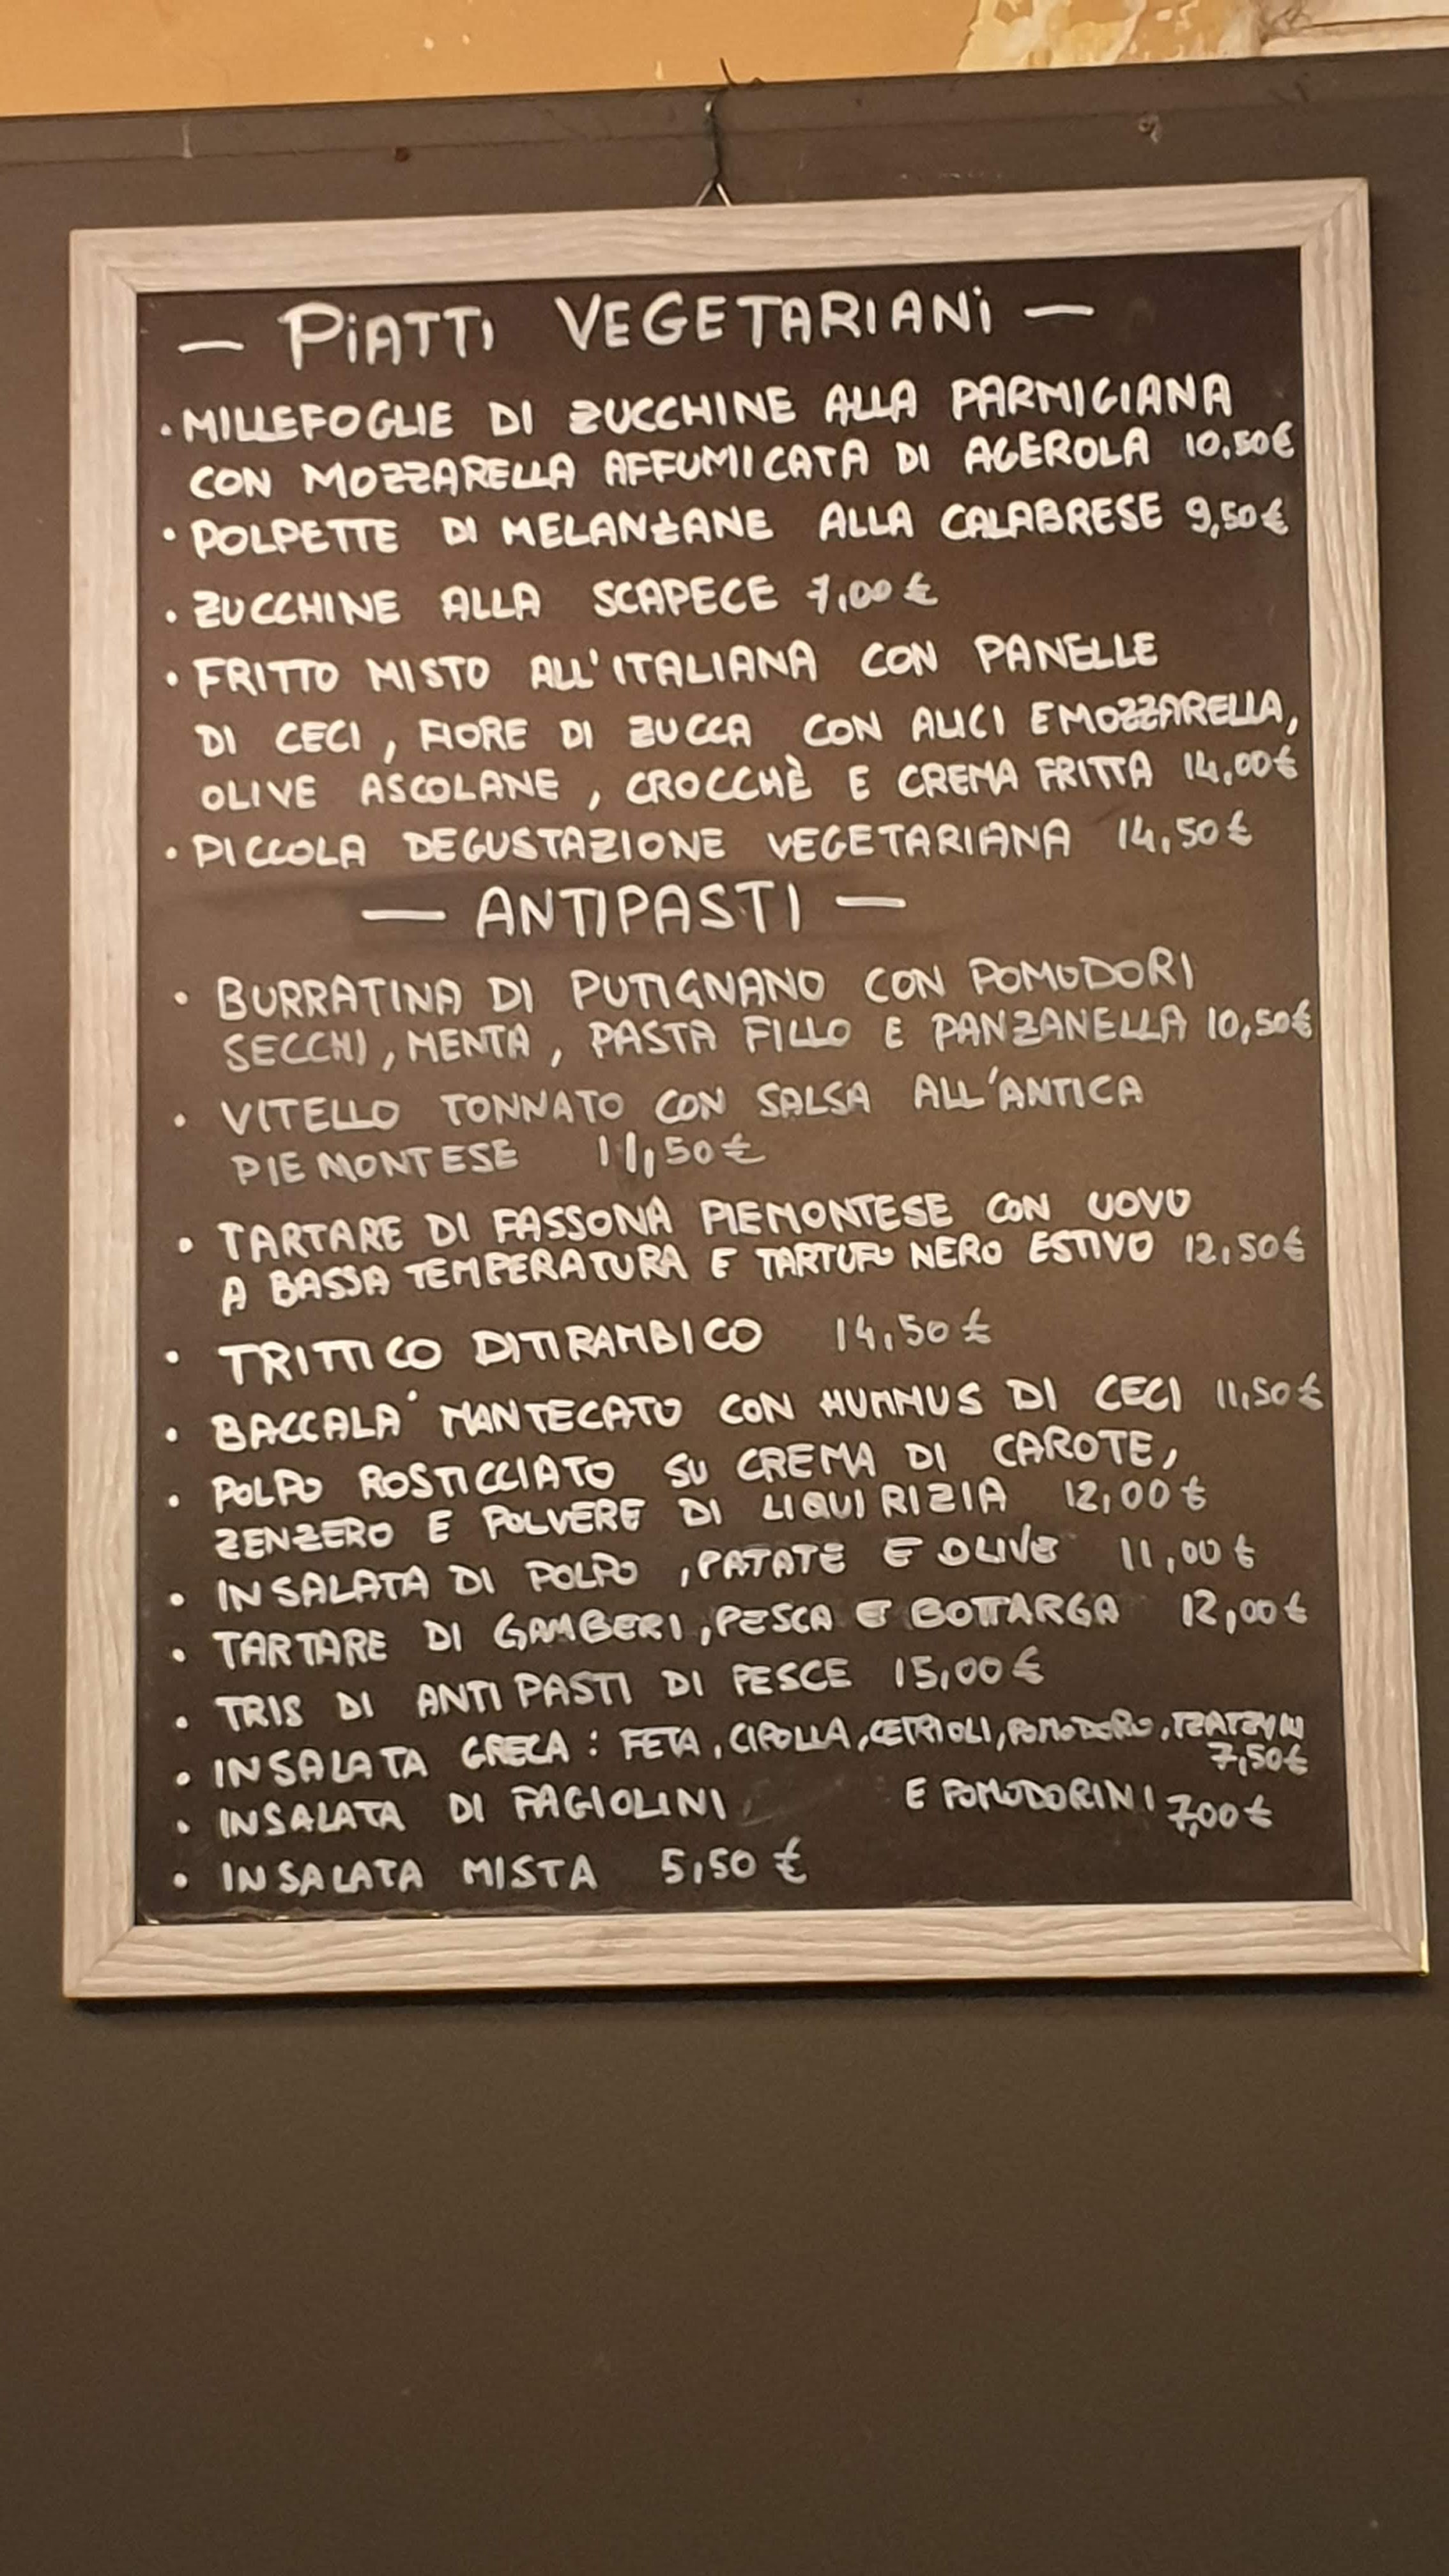 — PiATTI VEGETARIANi —
• MILLEFOGLIE DI ZUCCHINE ALLA PARMIGIANA
CON MOZZARELLA AFFUMICATA DI AGEROLA 10,50€
• POLPETTE DI MELANZANE ALLA CALABRESE 9,50€
• ZUCCHINE ALLA SCAPECE 7,00€
• FRITTO MISTO ALL'ITALIANA CON PANELLE
DI CECI, FIORE DI ZUCCA CON ALICI E MOZZARELLA,
OLIVE ASCOLANE, CROCCHÈ E CREMA FRITTA 14,00€
• PICCOLA DEGUSTAZIONE VEGETARIANA 14,50€
— ANTIPASTI —
• BURRATINA DI PUTIGNANO CON POMODORI
SECCHI, MENTA, PASTA FILLO E PANZANELLA 10,50€
• VITELLO TONNATO CON SALSA ALL'ANTICA
PIEMONTESE 11,50€
• TARTARE DI FASSONA PIEMONTESE CON UOVO
A BASSA TEMPERATURA E TARTUFO NERO ESTIVO 12,50€
• TRITTICO DITIRAMBICO 14,50€
• BACCALA' MANTECATO CON HUMMUS DI CECI 11,50€
• POLPO ROSTICCIATO SU CREMA DI CAROTE,
ZENZERO E POLVERE DI LIQUIRIZIA 12,00€
• INSALATA DI POLPO, PATATE E OLIVE 11,00€
• TARTARE DI GAMBERI, PESCA E BOTTARGA 12,00€
• TRIS DI ANTIPASTI DI PESCE 15,00€
• INSALATA GRECA: FETA, CIPOLLA, CETRIOLI, POMODORO,
7,50€
• INSALATA DI FAGIOLINI E POMODORINI 7,00€
• INSALATA MISTA 5,50€